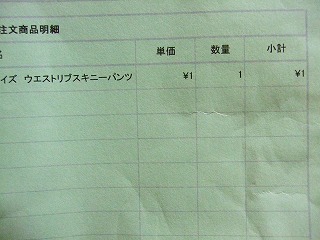 注文商品明細
名 単価 数量 小計
イズ ウエストリブスキニーパンツ ¥1 1 ¥1